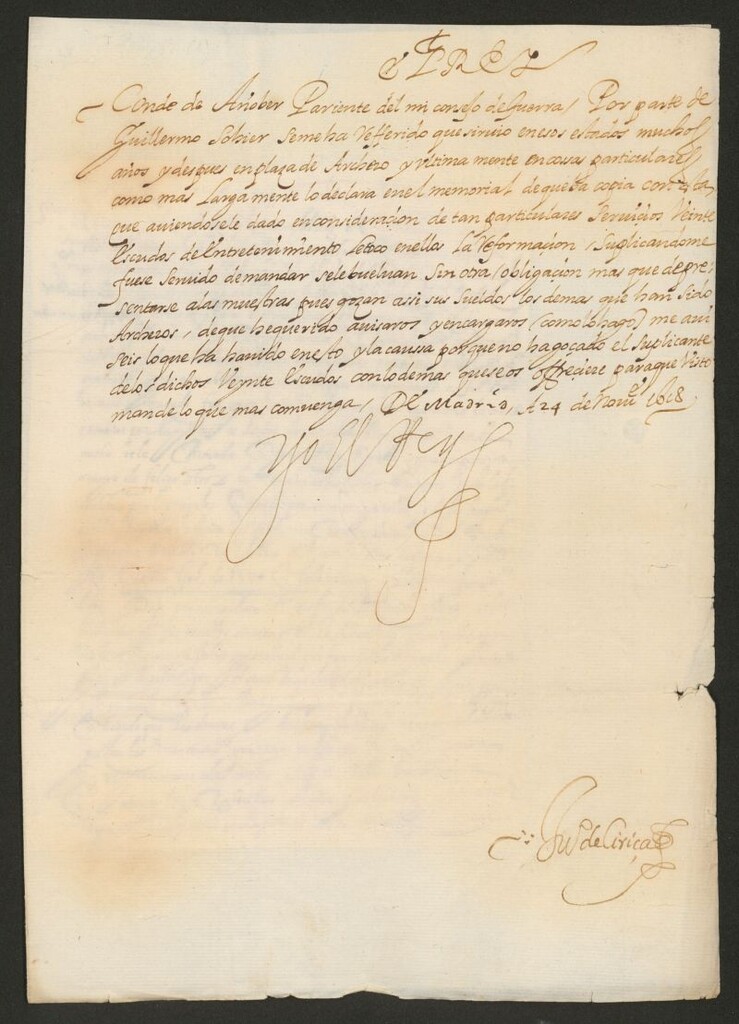 El REY
Conde de Añober Pariente del mi consejo de Guerra, Por parte de
Guillermo Sohier se me ha Refferido que siruio en esos estados muchos
años y despues en plaza de Archero y vltima mente en cosas particulares
como mas Largamente lo declara en el memorial de que ba copia con esta
que auiendosele dado en consideraçion de tan particulares Seruicios Veinte
Escudos de Entretenimiento Le toco en ellos La Reformaçion, Suplicandome
fuese Seruido de mandar se le bueluan Sin otra obligaçion mas que de pre
sentarse a las muestras pues gozan assi sus sueldos los demas que han Sido
Archeros, de que he querido auisaros y encargaros (como lo hago) me aui
seis lo que ha hauido en esto y la caussa porque no ha goçado el Suplicante
de los dichos Veynte Escudos con lo demas que se os offreciere para que Visto
mande lo que mas conuenga, De Madrid, A 24 de Nou.e 1618
Yo El Rey
Ju.o de Ciriça